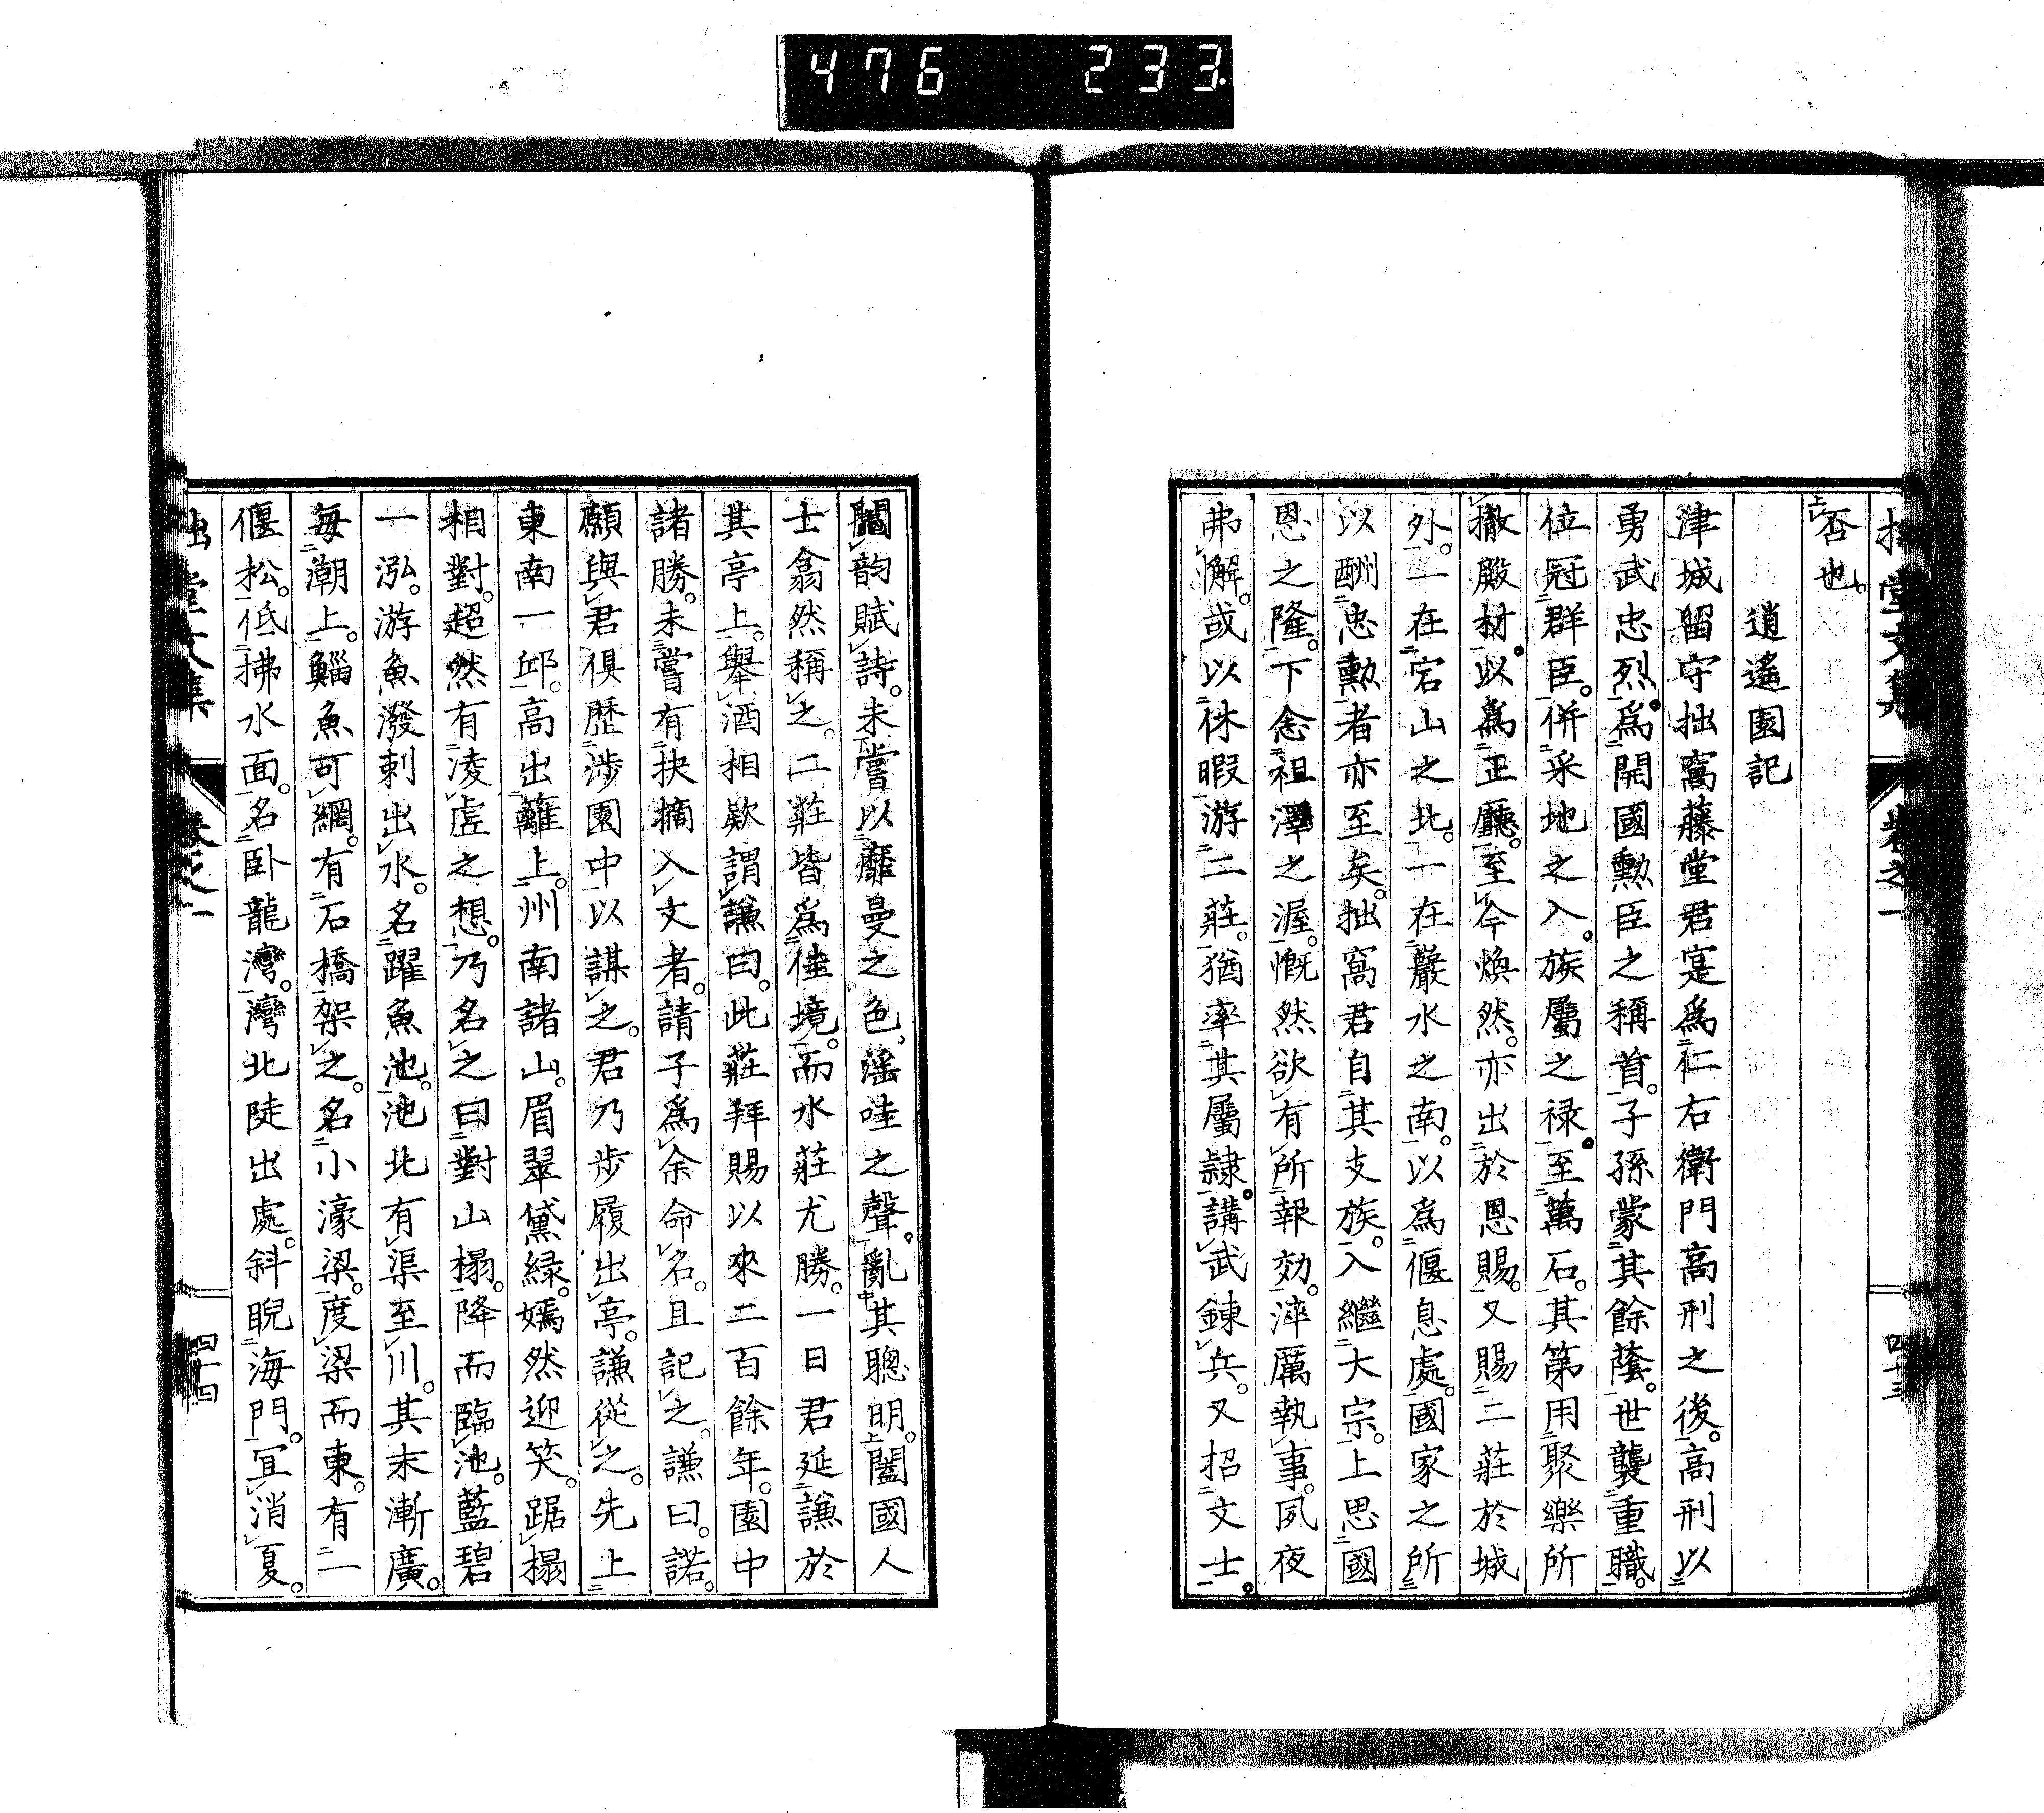 476 233
拙堂文集 卷之一 四十三
否也。
逍遙園記
津城留守拙窩藤堂君寔爲仁右衛門高刑之後。高刑以
勇武忠烈。爲開國勲臣之稱首。子孫蒙其餘蔭。世襲重職。
位冠群臣。併采地之入。族屬之禄。至萬石。其第用聚樂所
撤殿材。以爲正廳。至今煥然。亦出於恩賜。又賜二莊於城
外。一在宕山之北。一在巖水之南。以爲偃息處。國家之所
以酬忠勲者亦至矣。拙窩君自其支族。入繼大宗。上思國
恩之隆。下念祖澤之渥。慨然欲有所報効。淬厲執事。夙夜
弗懈。或以休暇。游二莊。猶率其屬隷。講武錬兵。又招文士。
鬮韵賦詩。未嘗以靡曼之色。滛哇之聲。亂其聰明。闔國人
士翕然稱之。二莊皆爲佳境。而水莊尤勝。一日君延謙於
其亭上。舉酒相歟謂謙曰。此莊拜賜以來二百餘年。園中
諸勝。未嘗有抉摘入文者。請子爲余命名。且記之。謙曰。諾。
願與君俱歴渉園中以謀之。君乃步履出亭。謙從之。先上
東南一邱。高出籬上。州南諸山。眉翠黛緑。嫣然迎笑。踞榻
相對。超然有凌虛之想。乃名之曰對山榻。降而臨池。藍碧
一泓。游魚潑剌出水。名躍魚池。池北有渠至川。其末漸廣。
每潮上。鯔魚可網。有石橋架之。名小濠梁。度梁而東。有一
偃松。低拂水面。名卧龍灣。灣北陡出處。斜睨海門。宜消夏。
拙堂文集 卷之一 四十四